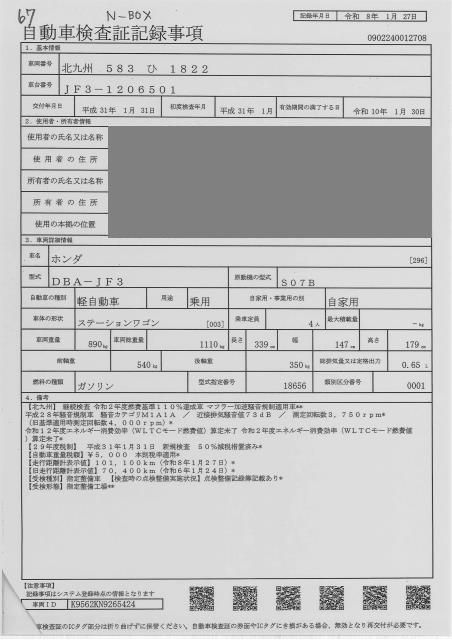 67 N-BOX
記録年月日 令和 8年 1月 27日
自動車検査証記録事項
0902240012708
1．基本情報
車両番号 北九州 583 ひ 1822
車台番号 JF3-1206501
交付年月日 平成 31年 1月 31日 初度検査年月 平成 31年 1月 有効期間の満了する日 令和 10年 1月 30日
2．使用者・所有者情報
使用者の氏名又は名称
使用者の住所
所有者の氏名又は名称
所有者の住所
使用の本拠の位置
3．車両詳細情報
車名 ホンダ [296]
型式 DBA-JF3 原動機の型式 S07B
自動車の種別 軽自動車 用途 乗用 自家用・事業用の別 自家用
車体の形状 ステーションワゴン [003] 乗車定員 4人 最大積載量 -kg
車両重量 890kg 車両総重量 1110kg 長さ 339cm 幅 147cm 高さ 179cm
前軸重 540kg 後軸重 350kg 総排気量又は定格出力 0.65 L
燃料の種類 ガソリン 型式指定番号 18656 類別区分番号 0001
4．備考
【北九州】 継続検査 令和2年度燃費基準110％達成車 マフラー加速騒音規制適用車**
平成28年騒音規制車 騒音カテゴリM1A1A ／ 近接排気騒音値73dB ／ 測定回転数3，750rpm*
（旧基準適用時測定回転数4，000rpm）*
令和12年度エネルギー消費効率（WLTCモード燃費値）算定未了 令和2年度エネルギー消費効率（WLTCモード燃費値
）算定未了*
【29年度税制】 平成31年1月31日 新規検査 50％減税措置済み*
【自動車重量税額】￥5，000 本則税率適用*
【走行距離計表示値】101，100km（令和8年1月27日）*
【旧走行距離計表示値】70，400km（令和6年1月24日）*
【受検種別】指定整備車 【検査時の点検整備実施状況】点検整備記録簿記載あり*
【受検形態】指定整備工場**
【注意事項】
記録事項はシステム登録時点の情報となります
車両ID K9562KN9265424
車検査証のICタグ部分は折り曲げずに保管ください。自動車検査証の券面やICタグにき損がある場合、無効となり再交付が必要です。